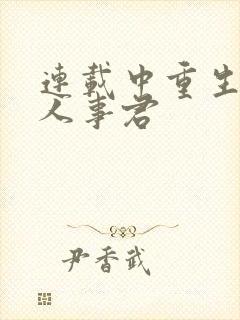 連載中重生
人事君
尹香武